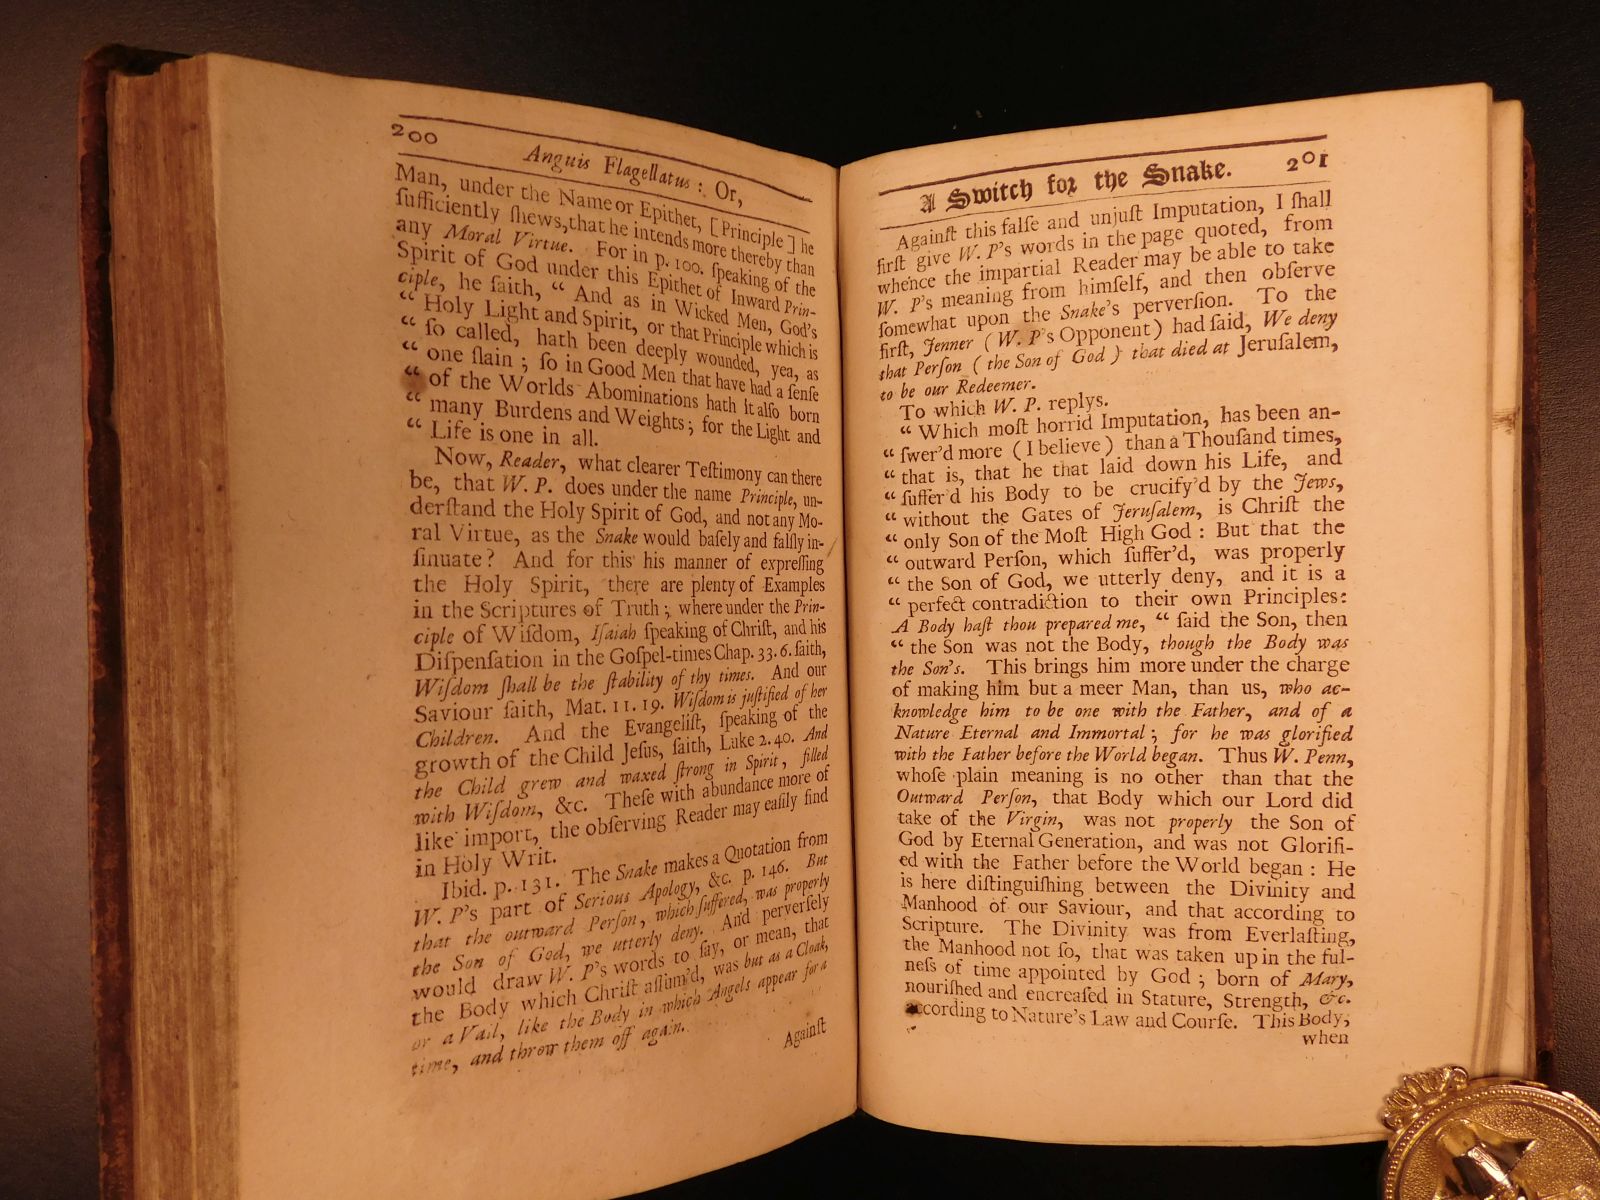 200
Anguis Flagellatus: Or,
Man, under the Name or Epithet, [Principle] he
ſufficiently ſhews, that he intends more thereby than
any Moral Virtue. For in p. 100. ſpeaking of the
Spirit of God under this Epithet of Inward Prin-
ciple, he ſaith, “ And as in Wicked Men, God's
“ Holy Light and Spirit, or that Principle which is
“ ſo called, hath been deeply wounded, yea, as
“ one ſlain ; ſo in Good Men that have had a ſenſe
“ of the Worlds Abominations hath it alſo born
“ many Burdens and Weights; for the Light and
“ Life is one in all.
Now, Reader, what clearer Teſtimony can there
be, that W. P. does under the name Principle, un-
derſtand the Holy Spirit of God, and not any Mo-
ral Virtue, as the Snake would baſely and falſly in-
ſinuate? And for this his manner of expreſſing
the Holy Spirit, there are plenty of Examples
in the Scriptures of Truth; where under the Prin-
ciple of Wiſdom, Iſaiah ſpeaking of Chriſt, and his
Diſpenſation in the Goſpel-times Chap. 33. 6. ſaith,
Wiſdom ſhall be the ſtability of thy times. And our
Saviour ſaith, Mat. 11. 19. Wiſdom is juſtified of her
Children. And the Evangeliſt, ſpeaking of the
growth of the Child Jeſus, ſaith, Luke 2. 40. And
the Child grew and waxed ſtrong in Spirit, filled
with Wiſdom, &c. Theſe with abundance more of
like import, the obſerving Reader may eaſily find
in Holy Writ.
Ibid. p. 131. The Snake makes a Quotation from
W. P's part of Serious Apology, &c. p. 146. But
that the outward Perſon, which ſuffered, was properly
the Son of God, we utterly deny. And perverſely
would draw W. P's words to ſay, or mean, that
the Body which Chriſt aſſum'd, was but as a Cloak,
or a Vail, like the Body in which Angels appear for a
time, and throw them off again.
Against
A Switch for the Snake. 201
Againſt this falſe and unjuſt Imputation, I ſhall
firſt give W. P's words in the page quoted, from
whence the impartial Reader may be able to take
W. P's meaning from himſelf, and then obſerve
ſomewhat upon the Snake's perverſion. To the
firſt, Jenner (W. P's Opponent) had ſaid, We deny
that Perſon (the Son of God) that died at Jeruſalem,
to be our Redeemer.
To which W. P. replys.
“ Which moſt horrid Imputation, has been an-
“ ſwer'd more (I believe) than a Thouſand times,
“ that is, that he that laid down his Life, and
“ ſuffer'd his Body to be crucify'd by the Jews,
“ without the Gates of Jeruſalem, is Chriſt the
“ only Son of the Moſt High God : But that the
“ outward Perſon, which ſuffer'd, was properly
“ the Son of God, we utterly deny, and it is a
“ perfect contradiction to their own Principles:
A Body haſt thou prepared me, “ ſaid the Son, then
“ the Son was not the Body, though the Body was
the Son's. This brings him more under the charge
of making him but a meer Man, than us, who ac-
knowledge him to be one with the Father, and of a
Nature Eternal and Immortal; for he was glorified
with the Father before the World began. Thus W. Penn,
whoſe plain meaning is no other than that the
Outward Perſon, that Body which our Lord did
take of the Virgin, was not properly the Son of
God by Eternal Generation, and was not Glorifi-
ed with the Father before the World began : He
is here diſtinguiſhing between the Divinity and
Manhood of our Saviour, and that according to
Scripture. The Divinity was from Everlaſting,
the Manhood not ſo, that was taken up in the ful-
neſs of time appointed by God ; born of Mary,
nouriſhed and encreaſed in Stature, Strength, &c.
according to Nature's Law and Courſe. This Body,
when